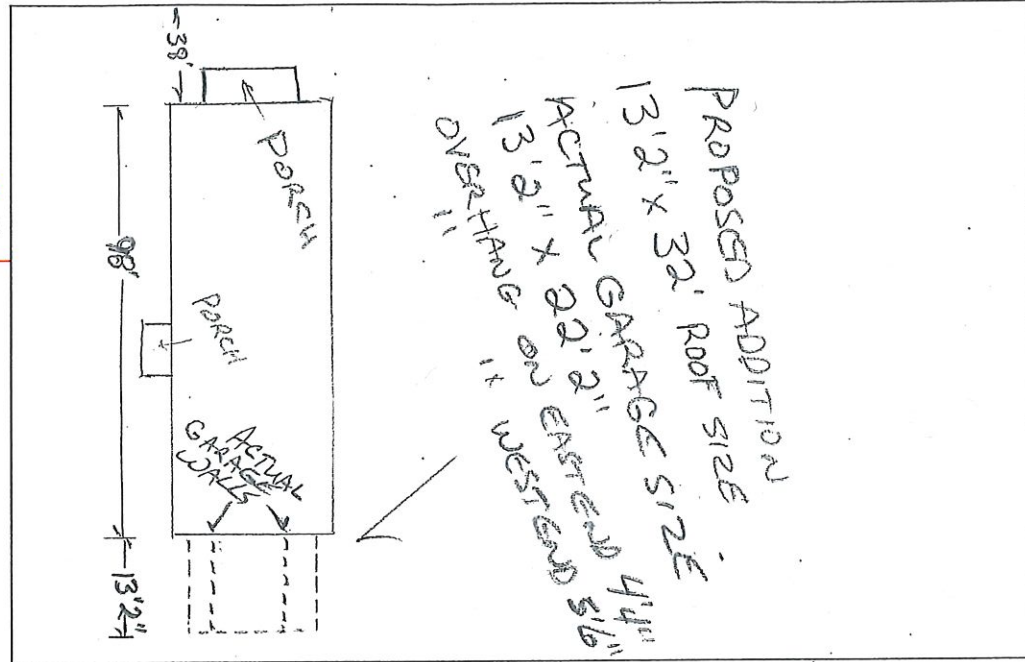 PROPOSED ADDITION
13'2" x 32' ROOF SIZE
ACTUAL GARAGE SIZE
13'2" X 22'2"
OVERHANG ON EASTEND 4'4"
" " WESTEND 5'6"
38'
PORCH
98'
PORCH
ACTUAL
GARAGE
WALLS
13'2"